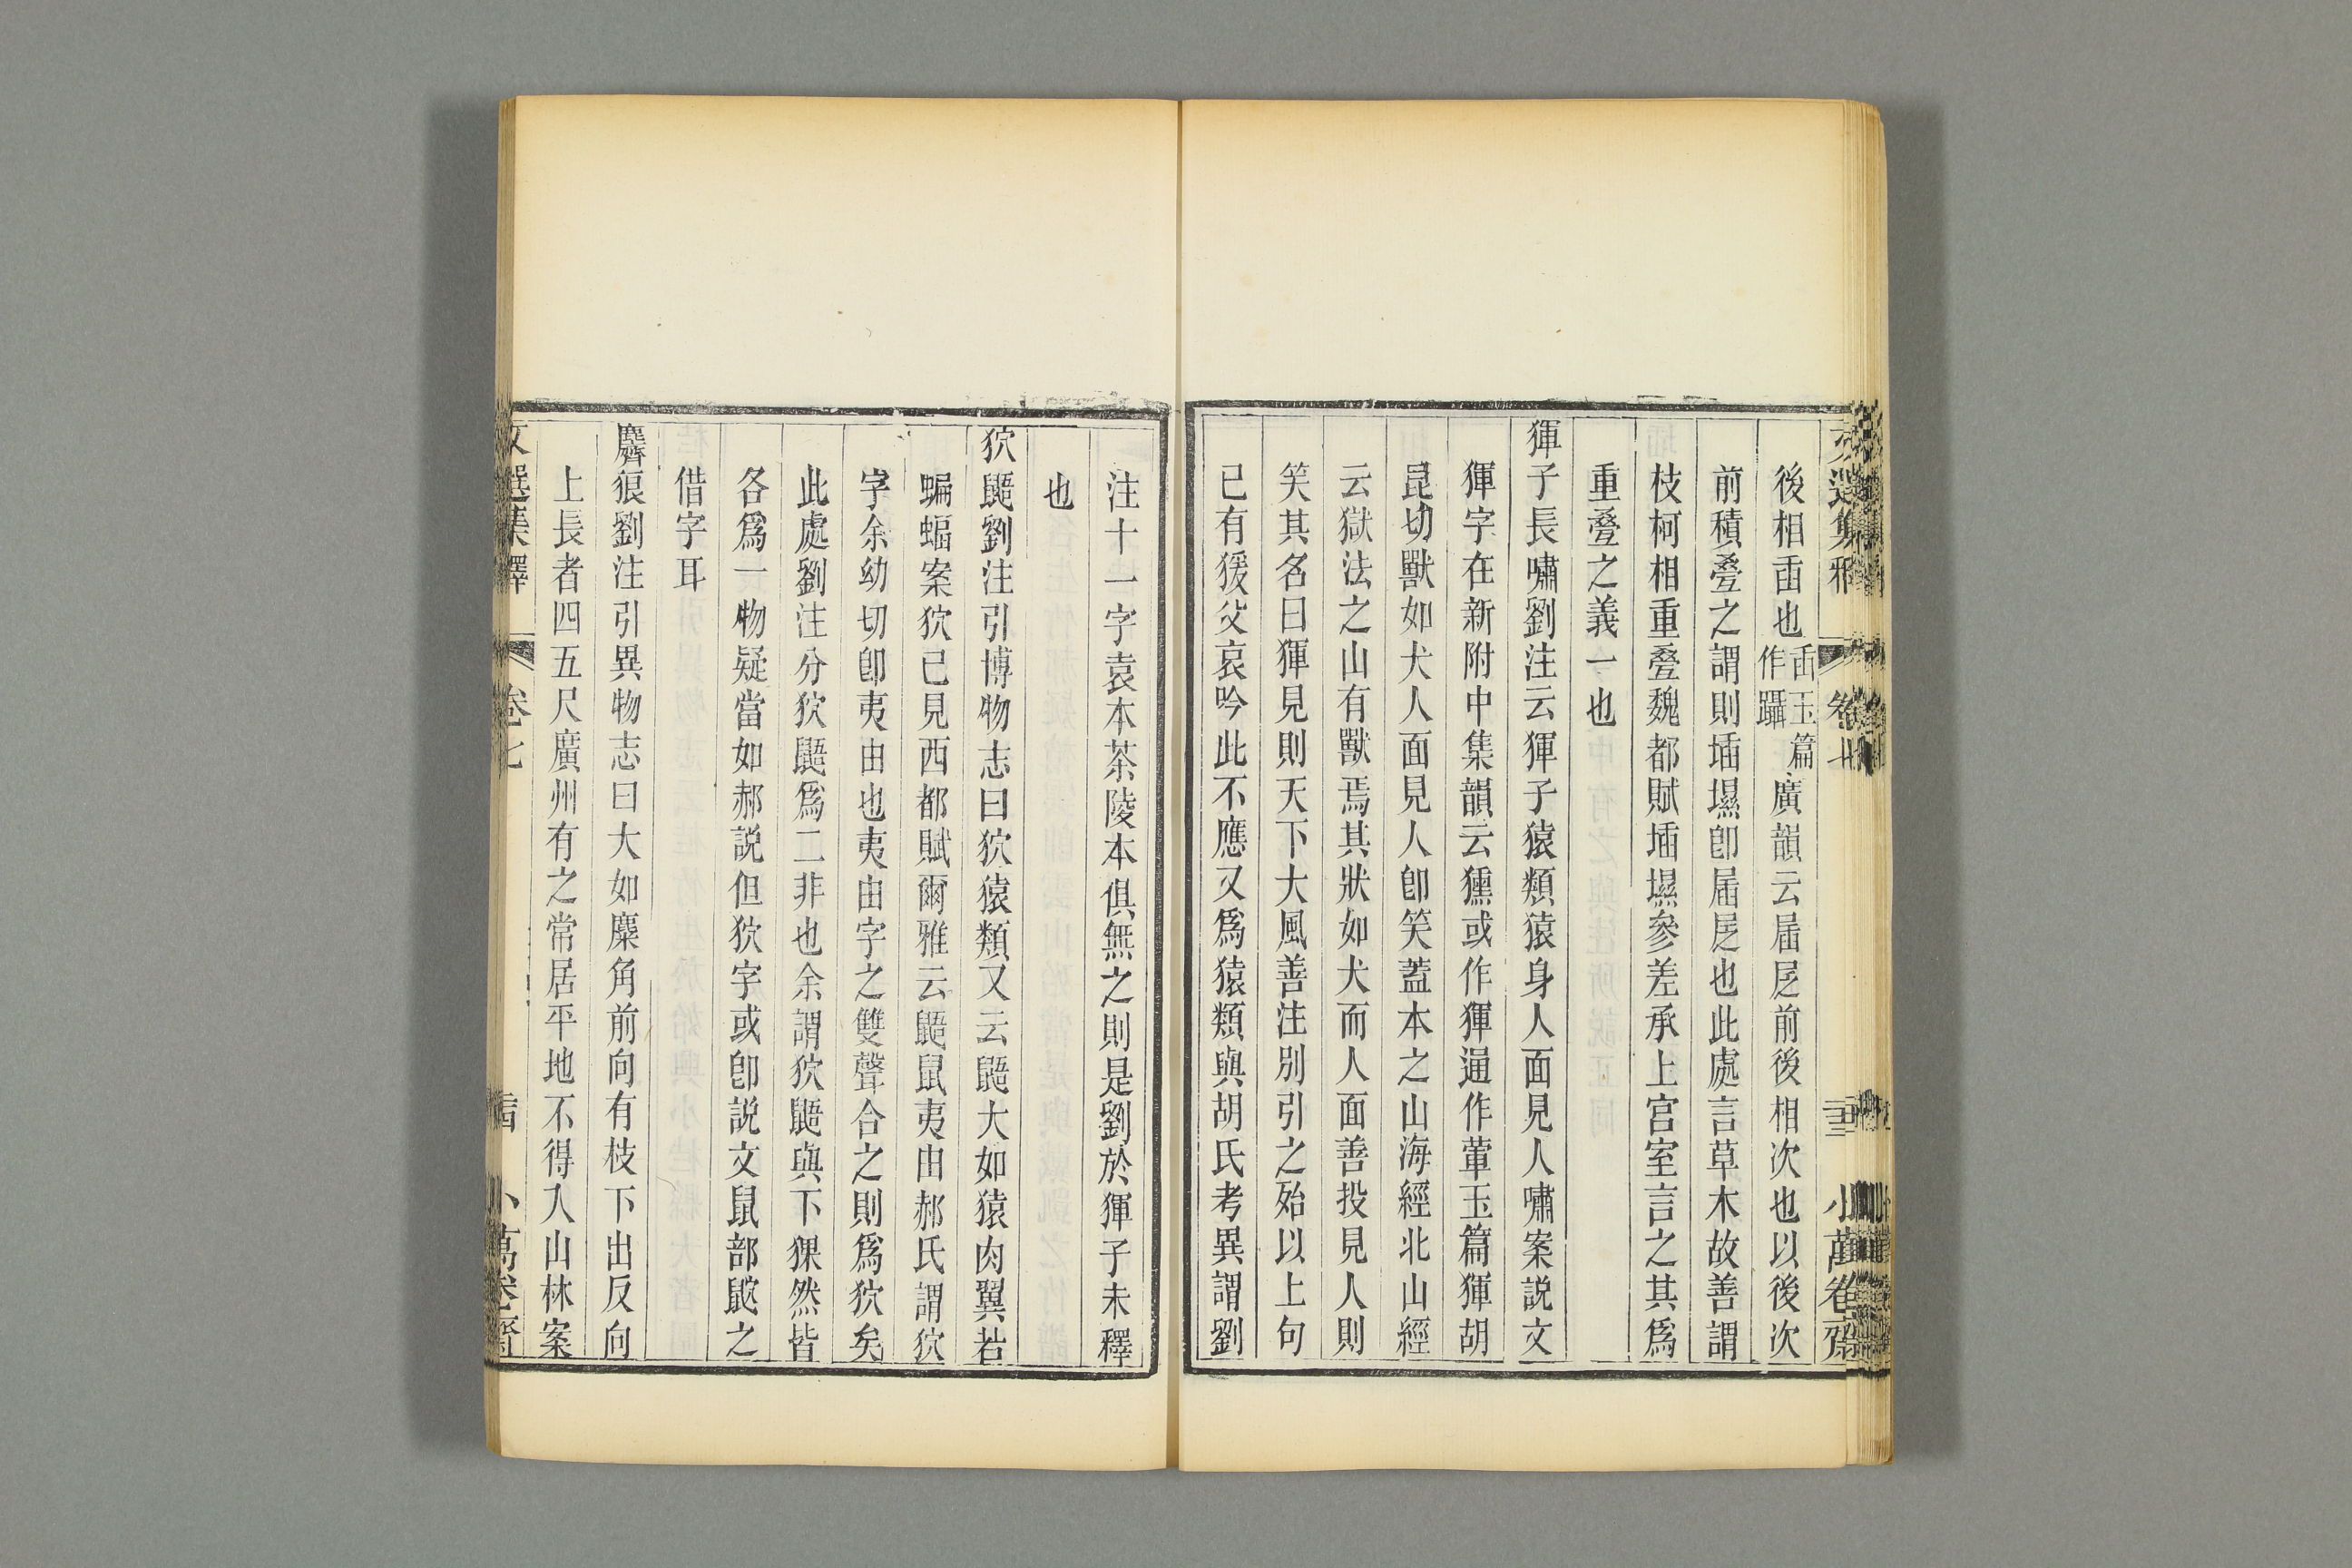 後相臿也臿玉篇作躡廣韻云届㞋前後相次也以後次
前積疊之謂則㙮㙷卽届㞋也此處言草木故善謂
枝柯相重疊魏都賦㙮㙷參差承上宫室言之其爲
重疊之義一也
獋子長嘯劉注云獋子猿類猿身人面見人嘯案説文
獋字在新附中集韻云獯或作獋逼作葷玉篇獋胡
昆切獸如犬人面見人卽笑蓋本之山海經北山經
云獄法之山有獸焉其狀如犬而人面善投見人則
笑其名曰獋見則天下大風善注別引之殆以上句
已有猨父哀吟此不應又爲猿類與胡氏考異謂劉
注十一字袁本茶陵本俱無之則是劉於獋子未釋
也
狖鼯劉注引博物志曰狖猿類又云鼯大如猿肉翼若
蝙蝠案狖已見西都賦爾雅云鼯鼠夷由郝氏謂狖
字余幼切卽夷由也夷由字之雙聲合之則爲狖矣
此處劉注分狖鼯爲二非也余謂狖鼯與下猓然皆
各爲一物疑當如郝説但狖字或卽説文鼠部鼨之
借字耳
麡狼劉注引異物志曰大如麋角前向有枝下出反向
上長者四五尺廣州有之常居平地不得入山林案
文選集釋 卷七 小萬卷齋